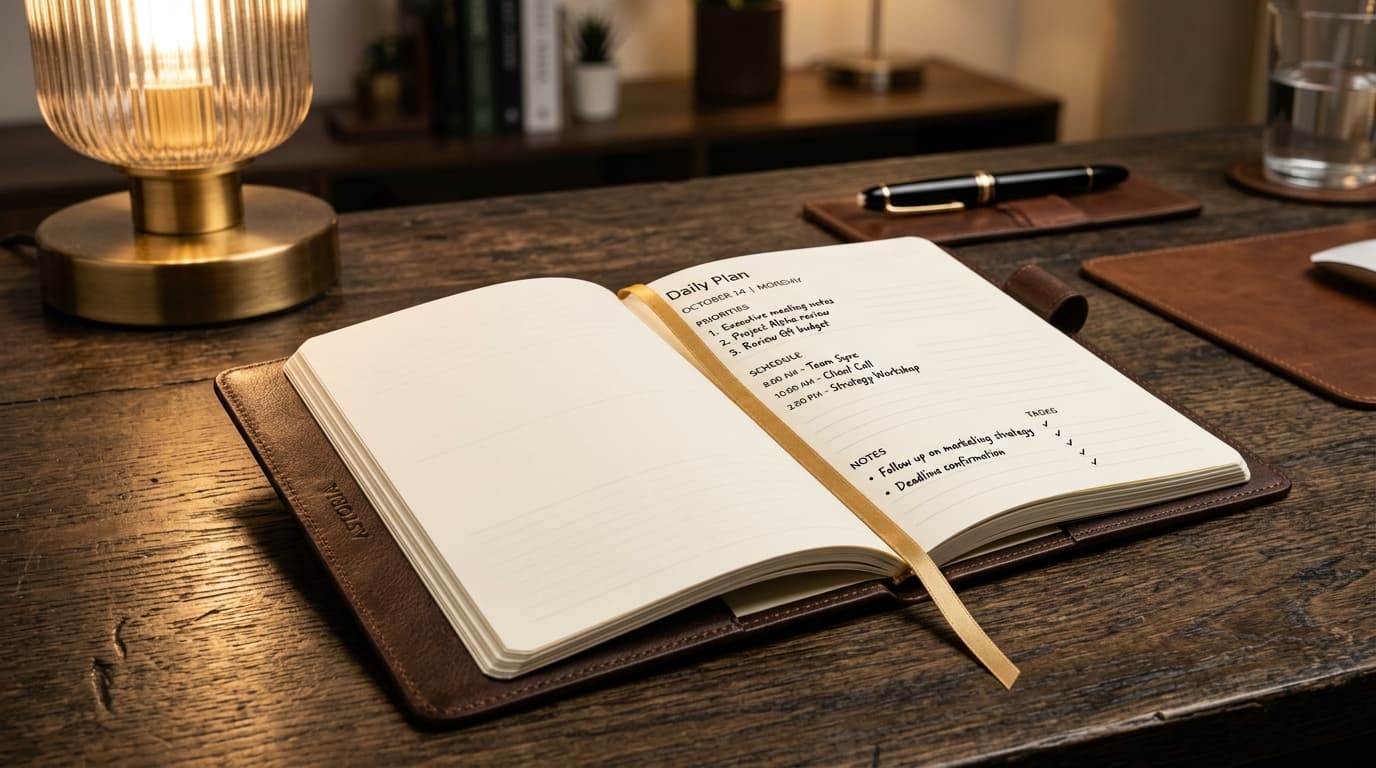 Daily Plan
OCTOBER 14 | MONDAY
PRIORITIES
1. Executive meeting notes
2. Project Alpha review
3. Roview budget
SCHEDULE
8:00 AM – Team Syre
10:00 AM – Client Call
2:30 PM – Strategy Workshop
TADES
NOTES
• Follow up on marketing strategy
• Deadline confirmation
ASTORIA